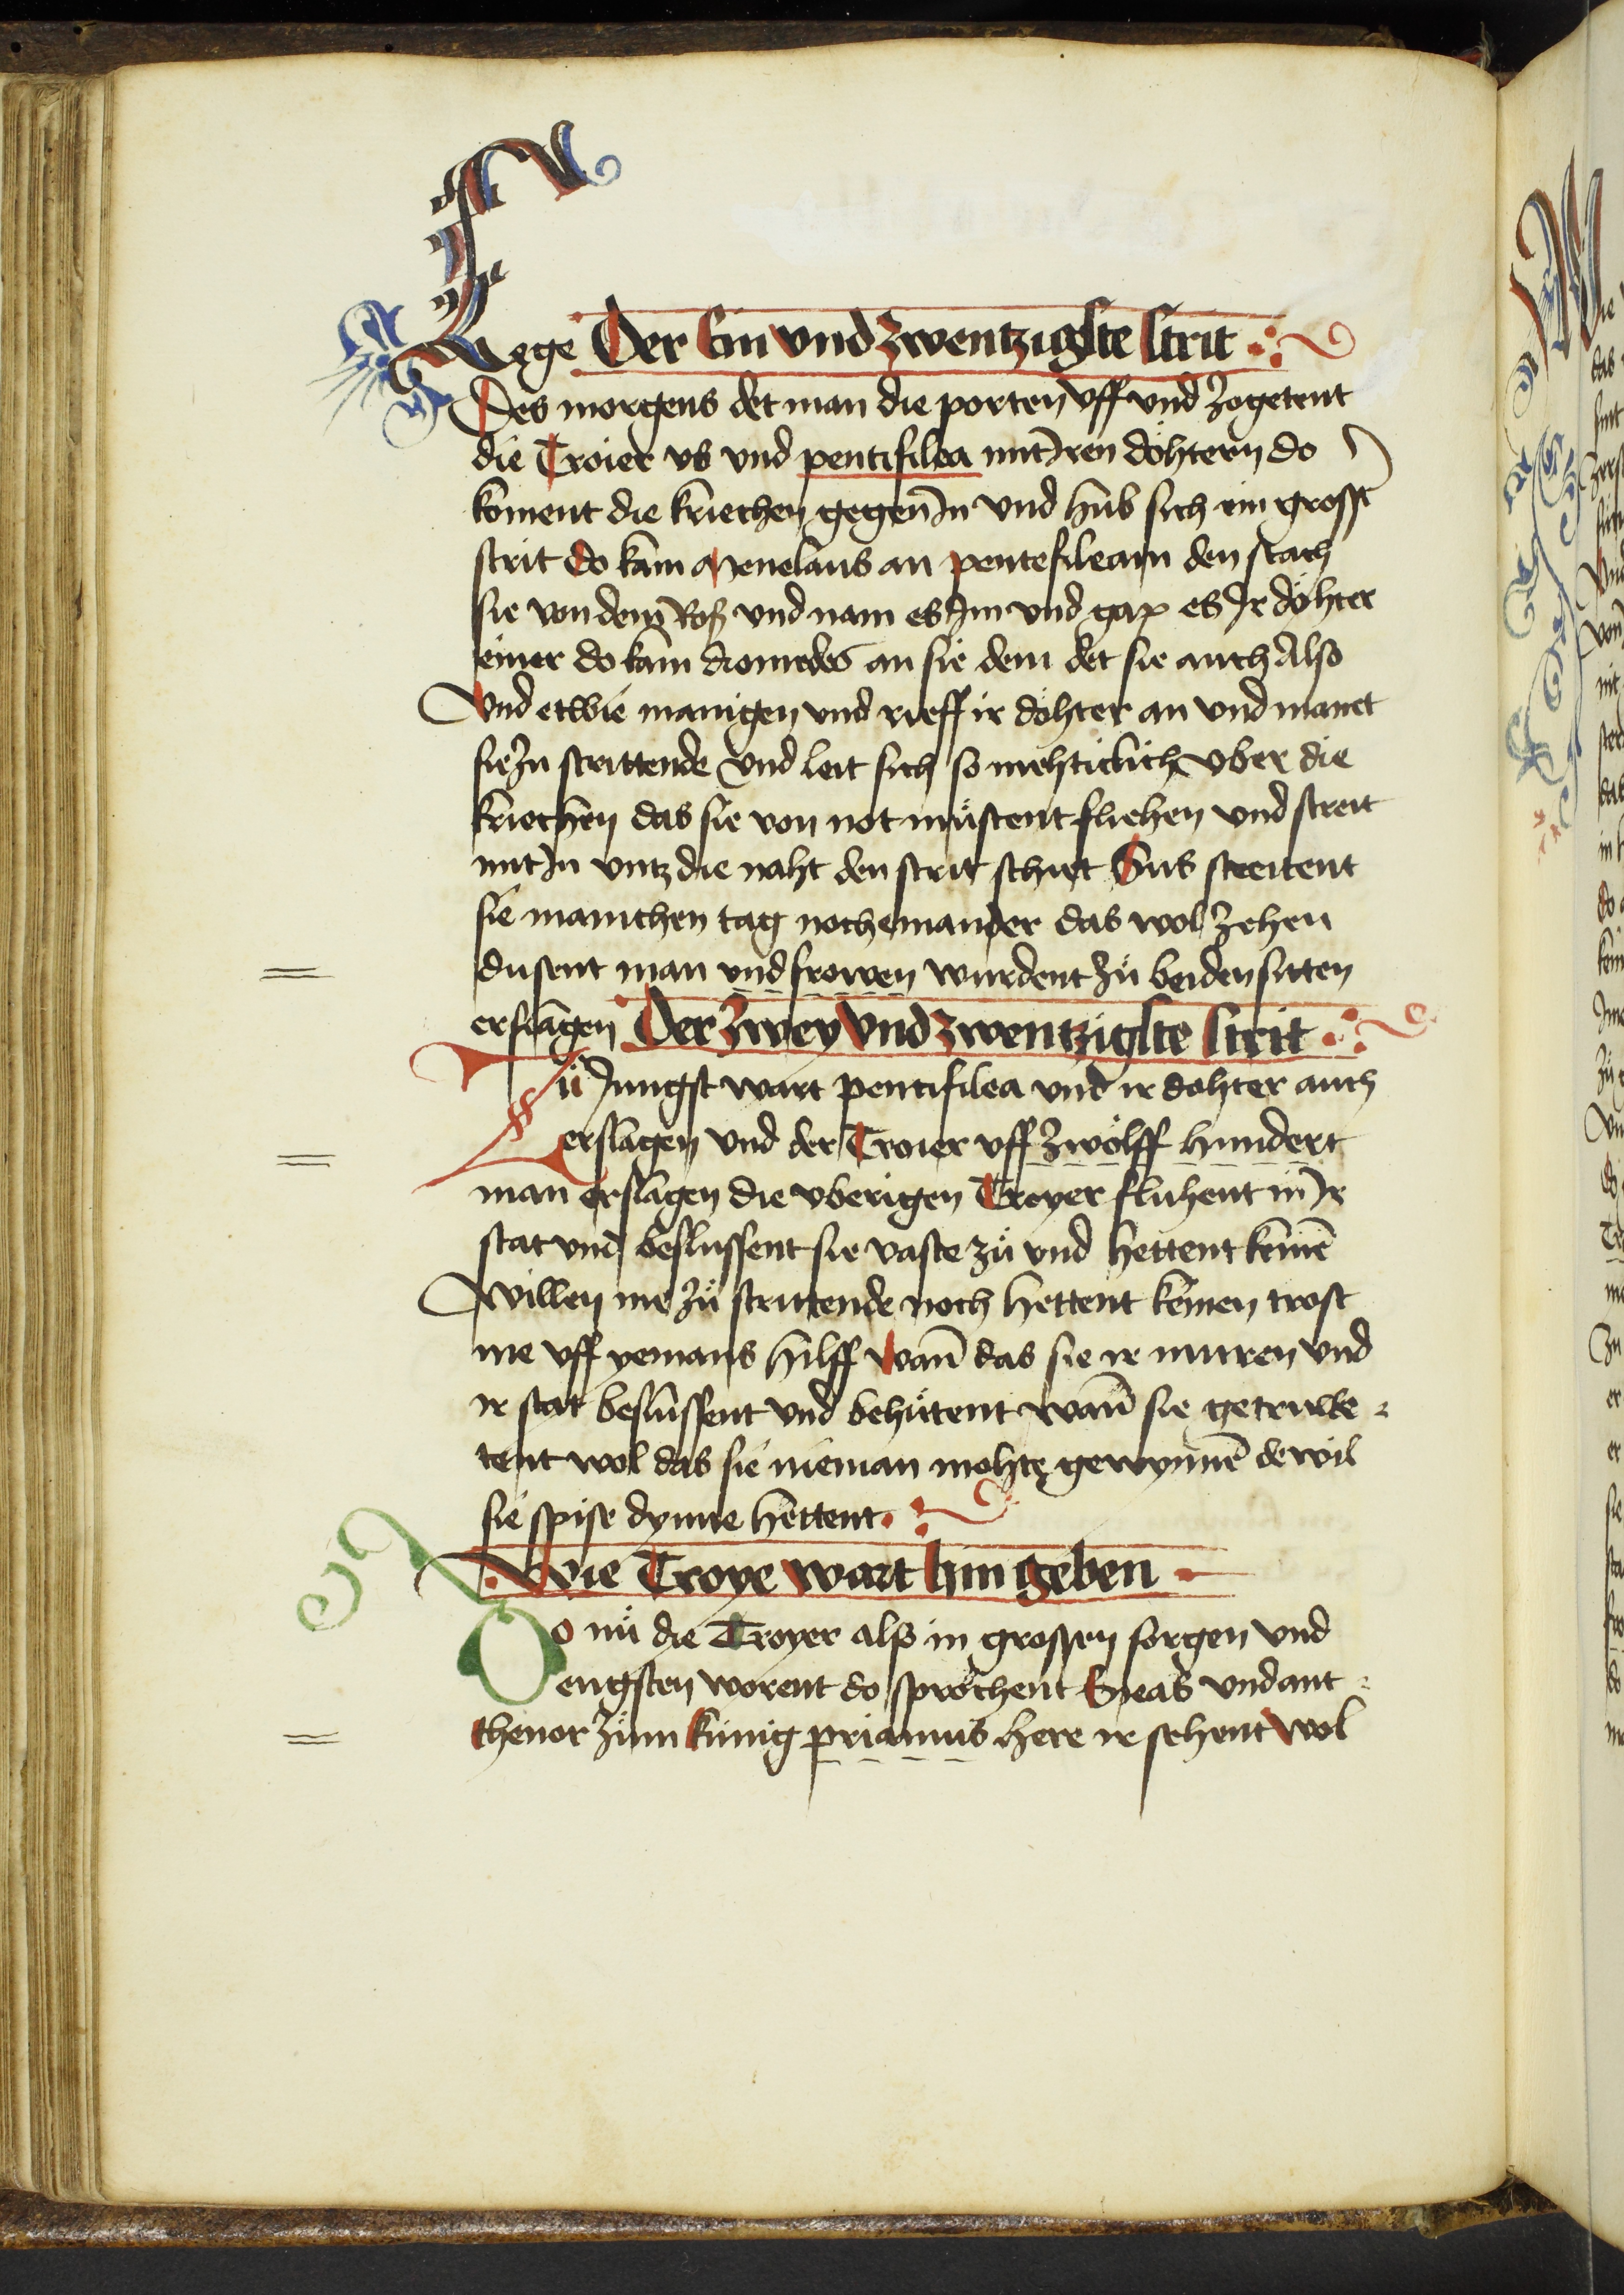 Wege Der Ein vnd zwentzigste strit
Des morgens det man die porten vff vnd zogetent
die Troier vs vnd pentisilea mit Jren döhtern do
koment die kriechen gegen Jn vnd hub sich ein grosser
strit do kam Menelaus an pentesileam den stach
sie von dem Roß vnd nam es Jm vnd gap es Jr döhter
einer do kam diomedes an sie dem det sie auch Also
Vnd etwie manigen vnd rieff ir döhter an vnd manet
sie zu strittende vnd leit sich so mehticlich vber die
kriechen das sie von not müstent fliehen vnd streit
mit Jn vntz die naht den strit schiet Sus streitent
sie manichen tag noch einander das wol zehen
dusent man vnd frowen wurdent zů beiden sitten
erslagen Der zwey vnd zwentzigste strit
Zů Jungst wart pentisilea vnd ir dohter auch
erslagen vnd der Troier vff zwölff hundert
man erslagen die vberigen Troyer fluhent in Jr
stat vnd beslussent sie vaste zů vnd hettent keinē
willen me zů strittende noch hettent keinen trost
me vff yemans hilff wañ das sie ir muren vnd
ir stat beslussent vnd behütent wañ sie getruwe-
tent wol das sie nieman mohte gewynnē dewil
sie spise dynne hettent
Wie Troye wart hin geben
Do nů die Troyer alß in grossen sorgen vnd
engsten worent do sprochent Eneas vnd ant-
thenor zům künig priamus here ir sehent wol